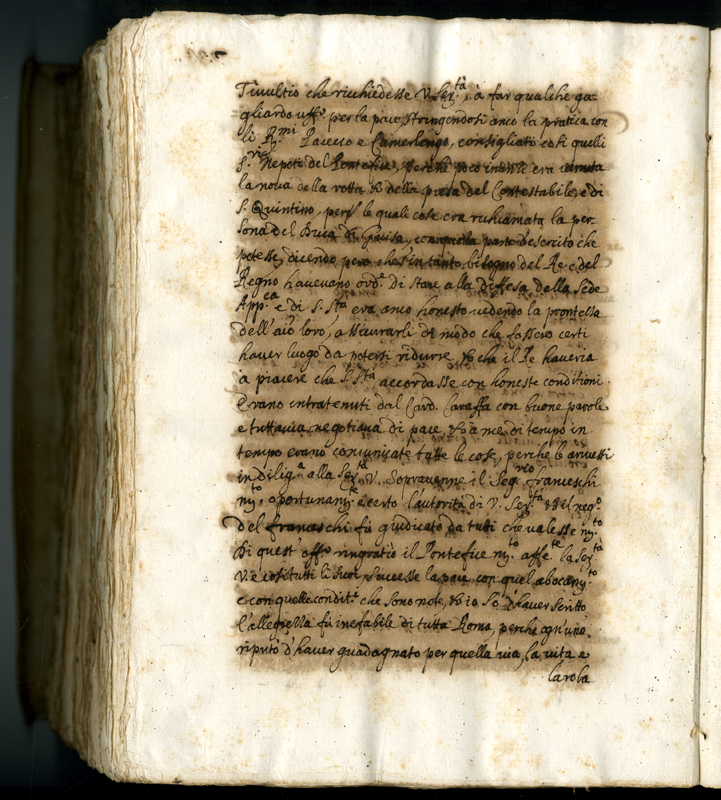 Trivultio che richiedesse V. Ser.tà, à far qualche ga=
gliardo uff.o per la pace, stringendosi anco la pratica con
li R.mi Pacecco e Camerlengo, consigliati così quelli
S.ri Nepoti del Pontefice, perche poco inanzi era venuta
la nova della rotta et della presa del Contestabile, e di
S. Quintino, per le quali cose era richiamata la per
sona del Duca di Guisa, con quella parte d'esercito che
potesse, dicendo pero che s'in tanto bisogno del Re e del
Regno havevano ord.e di stare alla diffesa della Sede
App.ca e di S. S.tà era anco honesto vedendo la prontezza
dell'aio loro, assicurarli di modo che fossero certi
haver luogo da potersi ridurre, et che il Re haveria
à piacere che S. S.tà accordasse con honeste conditioni.
Erano intratenuti dal Card. Caraffa con buone parole
e tuttavia negotiava di pace, et à me di tempo in
tempo erano comunicate tutte le cose, perche l'avisassi
in dilig.a alla Ser.tà V. Sopravenne il Seg.rio franceschi
m.to oportunam.te e certo l'autorità di V. Ser.tà et il neg.o
del franceschi fù giudicato da tutti che valesse m.to
Di quest'off.o ringratio il Pontefice m.to affe.te la Ser.tà
V. e così tutti li suoi, successe la pace con quel abocam.to
e con quelle condit.i che sono note, et io so d'haver scritto
l'allegrezza fù inefabile di tutta Roma, perche ogn'uno
riputò d'haver guadagnato per quella via, la vita e
la roba